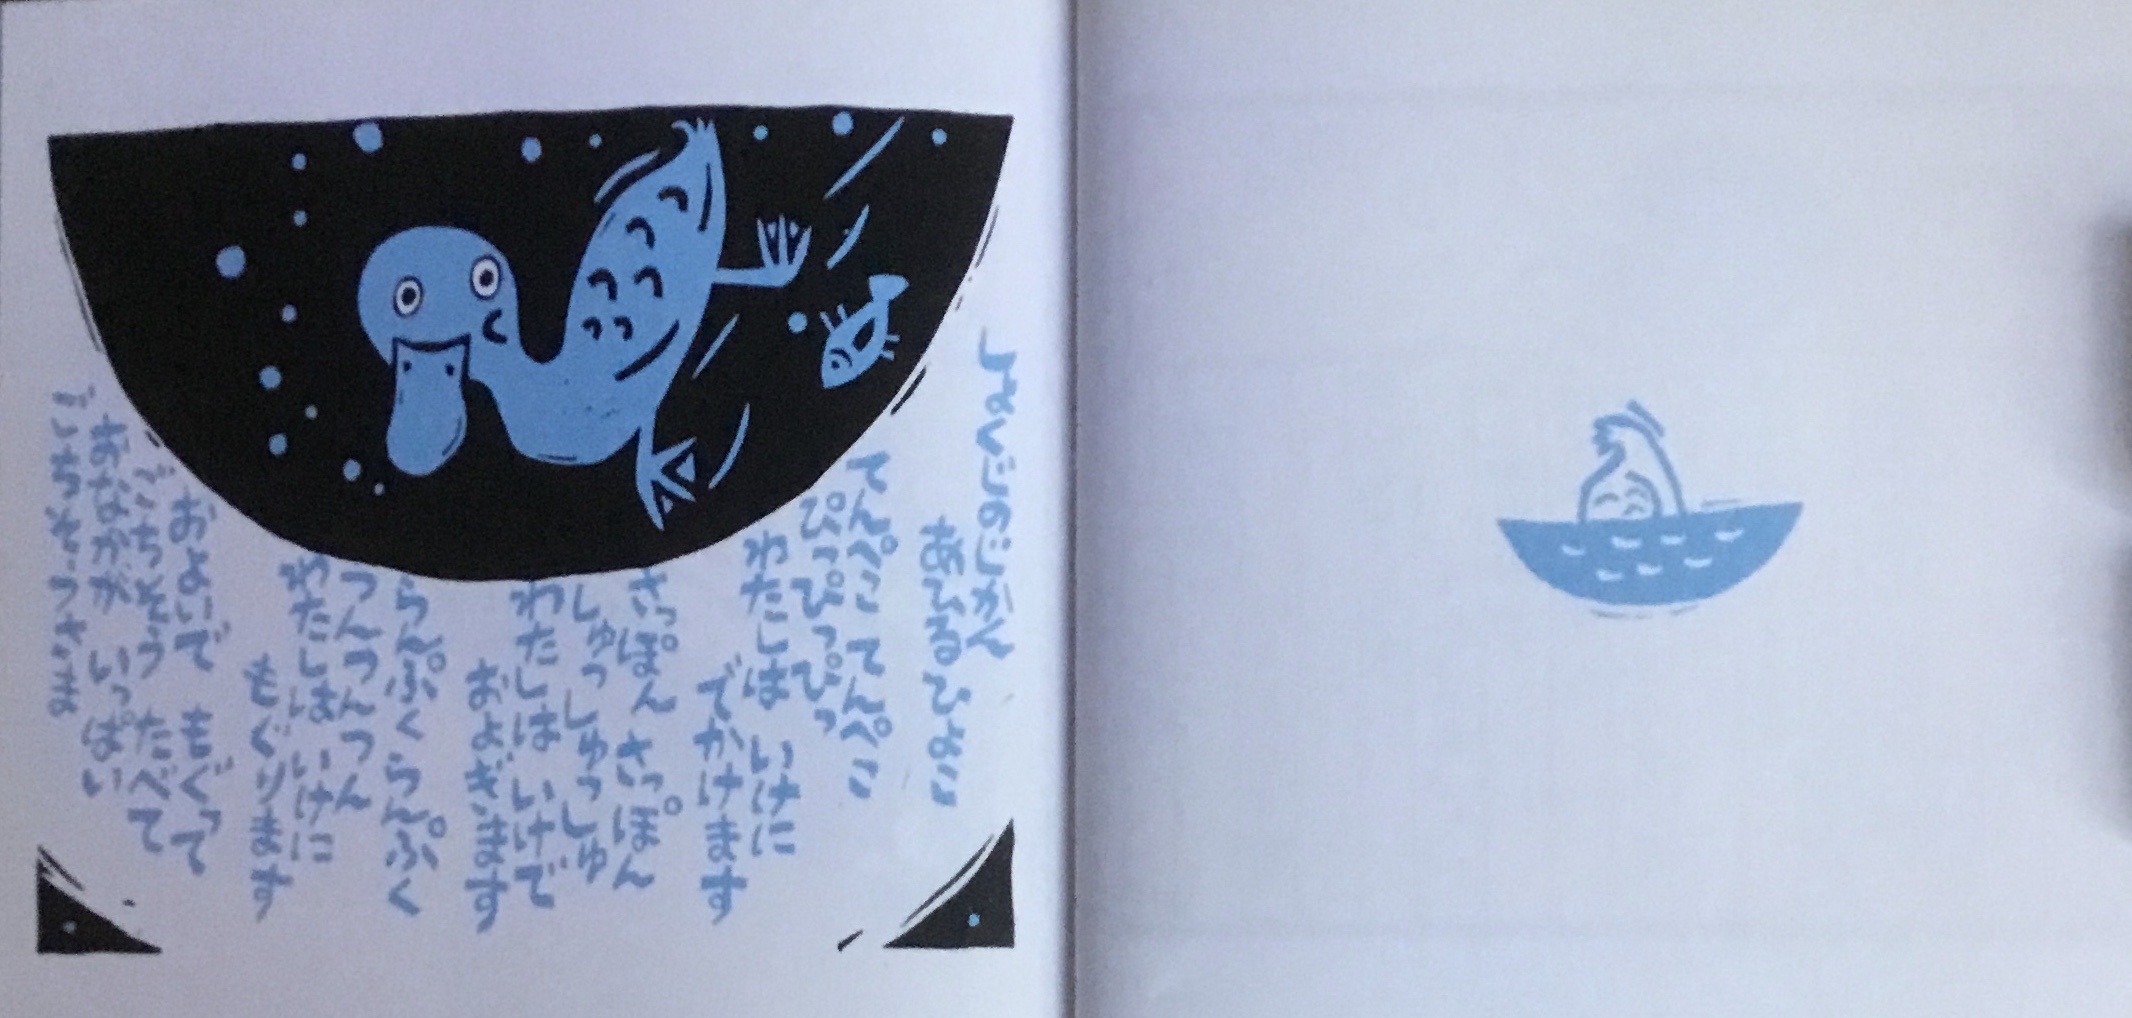 しょくじのじかん
あひるひよこ
てんぺこ てんぺこ
ぴっぴっぴっ
わたしは いけに
でかけます
さっぽん さっぽん
しゅっしゅっしゅ
わたしは いけで
およぎます
らんぷく らんぷく
つんつんつん
わたしは いけに
もぐります
およいで もぐって
ごちそう たべて
おなかが いっぱい
ごちそうさま